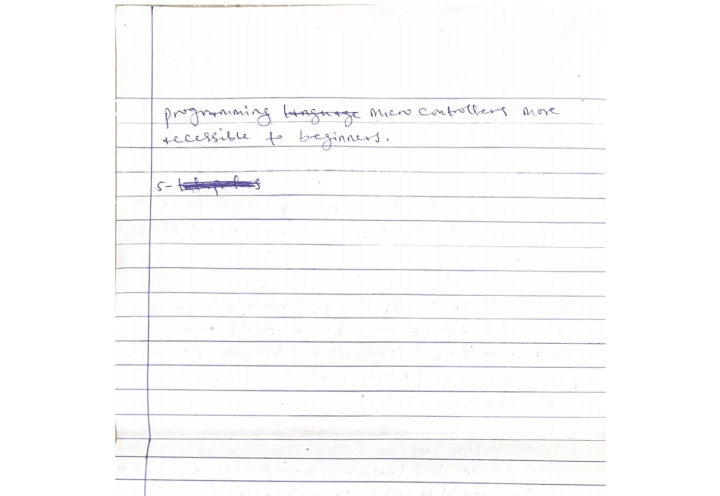 programming language micro controllers more
accessible to beginners.
5-